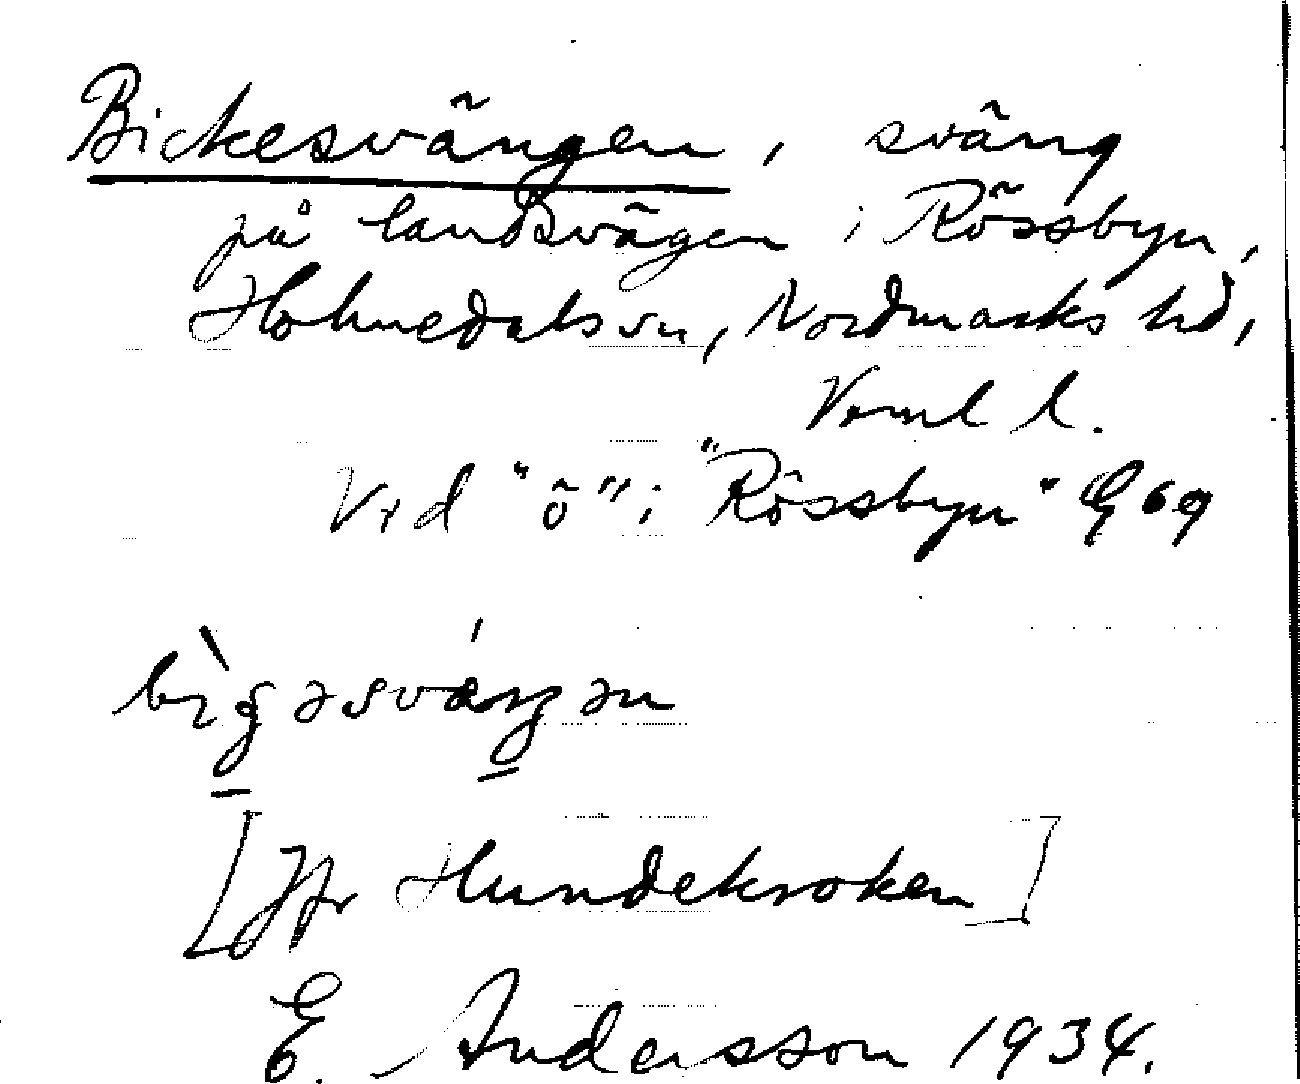 Bickesvängen, sväng
på landsvägen i Rössbyn,
Holmedals sn, Nordmarks hd,
Verml l.
Vid "ö" i "Rössbyn" G 69
[Jfr Hundekroken]
E. Andersson 1934.